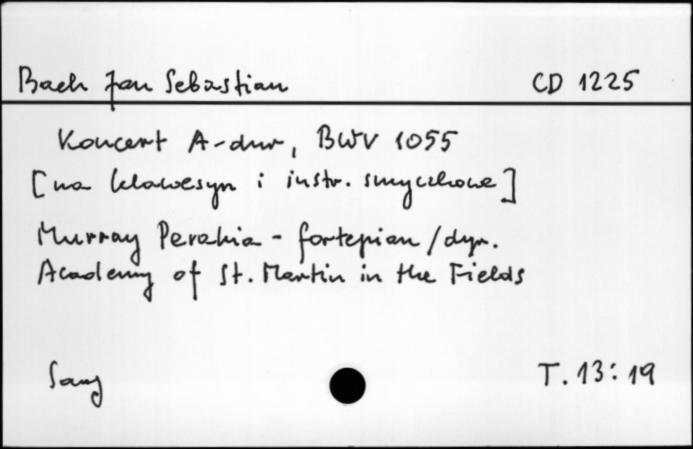 Bach Jan Sebastian CD 1225
Koncert A-dur, BWV 1055
[na klawesyn i instr. smyczkowe]
Murray Perahia - fortepian/dyr.
Academy of St. Martin in the Fields
Sony T. 13:19